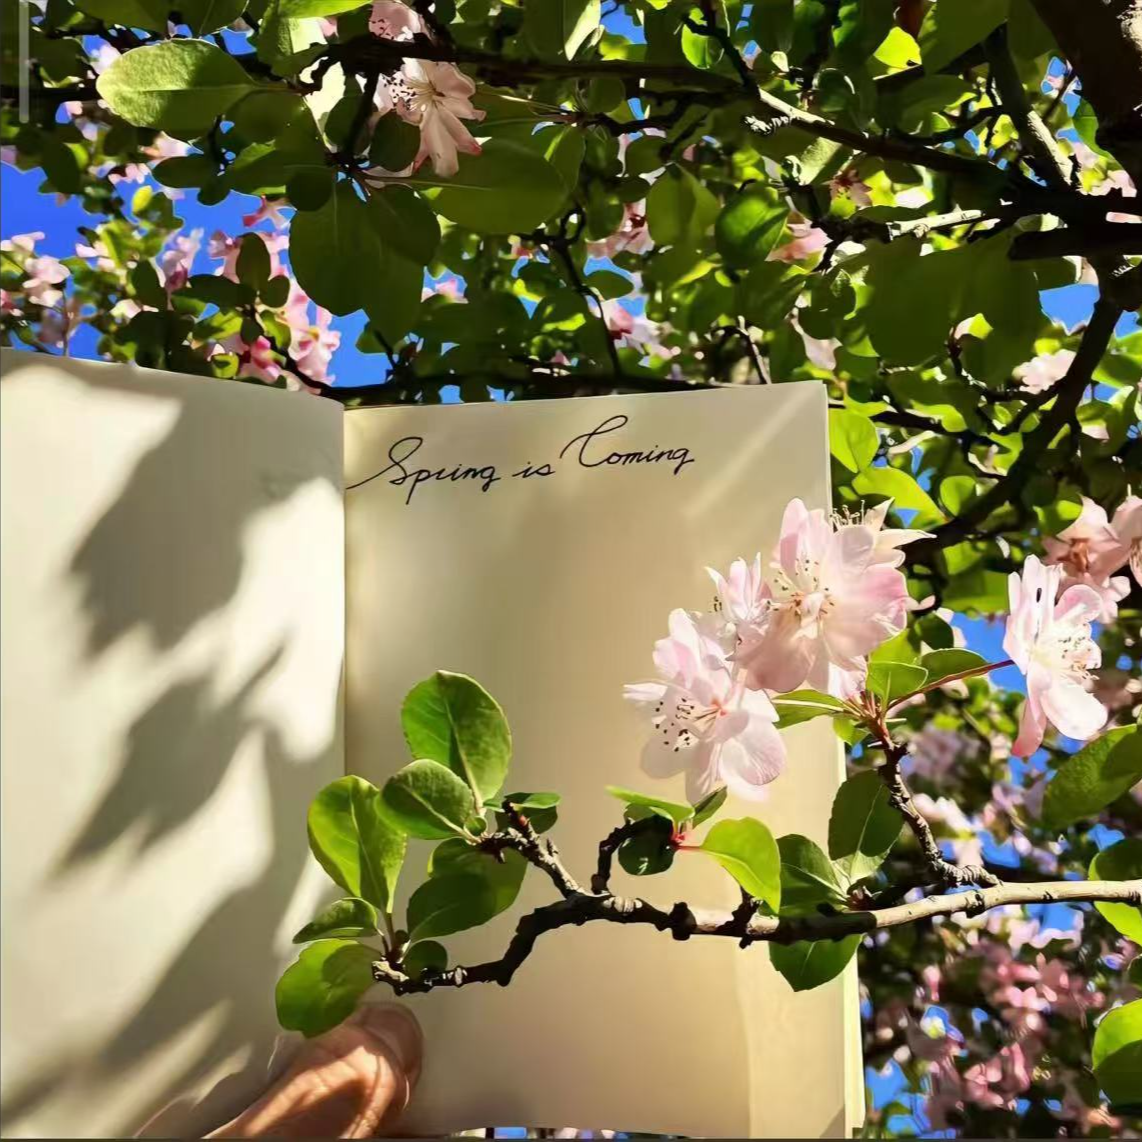 Spring is Coming